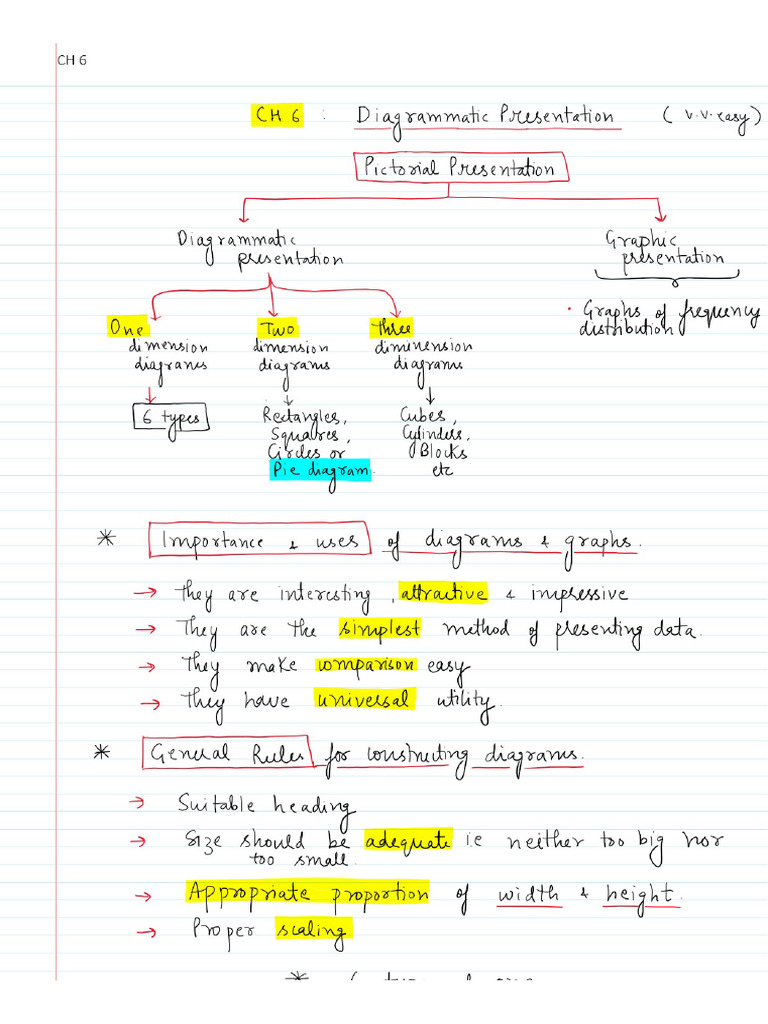 CH 6
CH 6 : Diagrammatic Presentation (v.v.easy)
Pictorial Presentation
Diagrammatic presentation
Graphic presentation
• Graphs of frequency distribution
One dimension diagrams
Two dimension diagrams
three diminension diagrams
6 types
Rectangles, Squares, Circles or Pie diagram.
Cubes, Cylinders, Blocks etc
* Importance & uses of diagrams & graphs.
→ They are interesting, attractive & impressive
→ They are the simplest method of presenting data.
→ They make comparison easy
→ They have universal utility.
* General Rules for constructing diagrams.
→ Suitable heading
→ Size should be adequate ie neither too big nor
too small.
→ Appropriate proportion of width & height.
→ Proper scaling